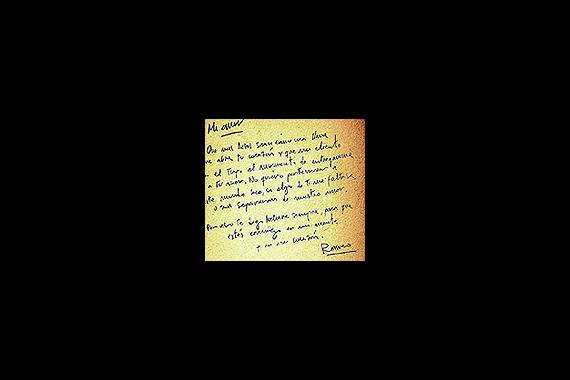 Mi amor
Que mis besos sean como una llave
abra tu corazón y que mi aliento
el tuyo al momento de entregarme
a tu amor. No quiero pertenecer a
este mundo seco, si algo de ti me falta se
o nos separaran de nuestro amor.
Por eso te digo hasta siempre, para que
estés conmigo en mi mente
y en mi corazón.
Romeo